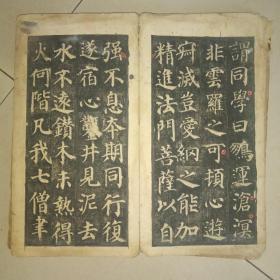 謂同學曰鵬運滄溟
非雲羅之可頓心遊
寂滅豈愛網之能加
精進法門菩薩以自
强不息本期同行復
遂宿心鑿井見泥去
水不遠鑽木未熱得
火何階凡我七僧聿